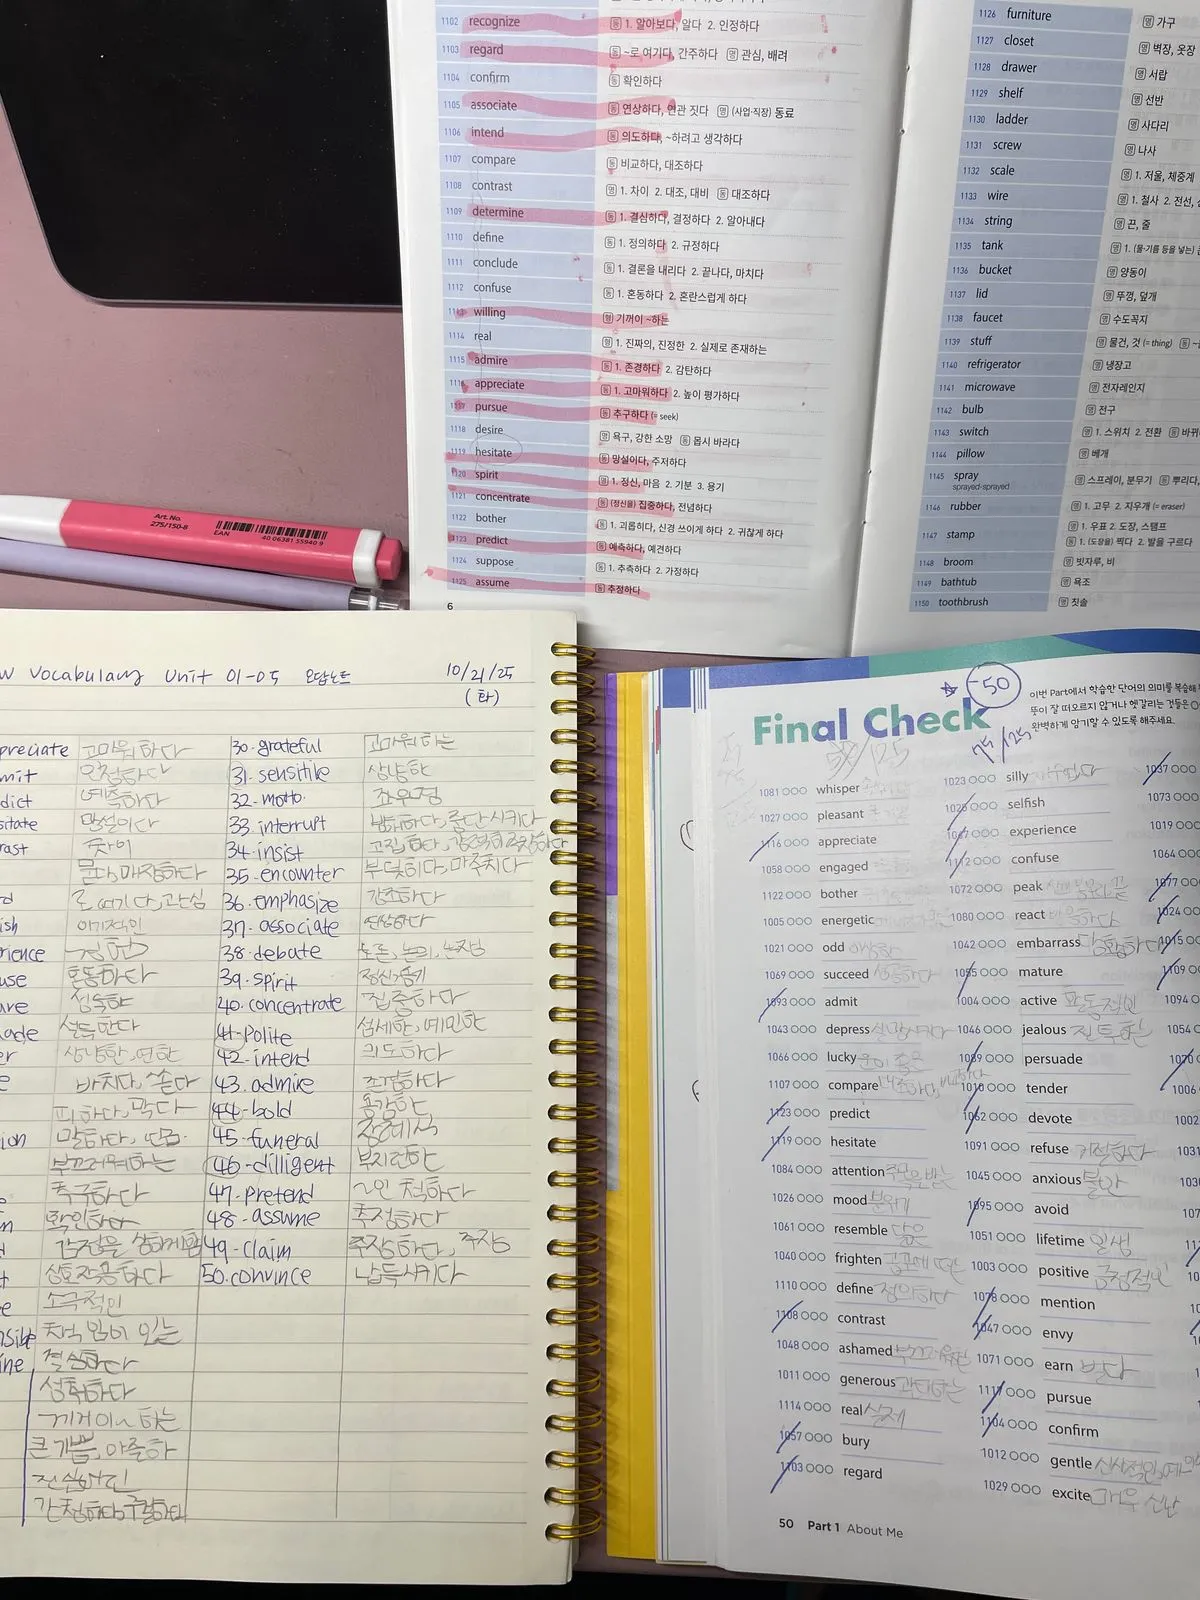 1102 recognize 동 1. 알아보다, 알다 2. 인정하다
1103 regard 동 ~로 여기다, 간주하다 명 관심, 배려
1104 confirm 동 확인하다
1105 associate 동 연상하다, 연관 짓다 명 (사업·직장) 동료
1106 intend 동 의도하다, ~하려고 생각하다
1107 compare 동 비교하다, 대조하다
1108 contrast 명 1. 차이 2. 대조, 대비 동 대조하다
1109 determine 동 1. 결심하다, 결정하다 2. 알아내다
1110 define 동 1. 정의하다 2. 규정하다
1111 conclude 동 1. 결론을 내리다 2. 끝나다, 마치다
1112 confuse 동 1. 혼동하다 2. 혼란스럽게 하다
1113 willing 형 기꺼이 ~하는
1114 real 형 1. 진짜의, 진정한 2. 실제로 존재하는
1115 admire 동 1. 존경하다 2. 감탄하다
1116 appreciate 동 1. 고마워하다 2. 높이 평가하다
1117 pursue 동 추구하다 (= seek)
1118 desire 명 욕구, 강한 소망 동 몹시 바라다
1119 hesitate 동 망설이다, 주저하다
1120 spirit 명 1. 정신, 마음 2. 기분 3. 용기
1121 concentrate 동 (정신을) 집중하다, 전념하다
1122 bother 동 1. 괴롭히다, 신경 쓰이게 하다 2. 귀찮게 하다
1123 predict 동 예측하다, 예견하다
1124 suppose 동 1. 추측하다 2. 가정하다
1125 assume 동 추정하다
6
1126 furniture 명 가구
1127 closet 명 벽장, 옷장
1128 drawer 명 서랍
1129 shelf 명 선반
1130 ladder 명 사다리
1131 screw 명 나사
1132 scale 명 1. 저울, 체중계
1133 wire 명 1. 철사 2. 전선,
1134 string 명 끈, 줄
1135 tank 명 1. (물·기름 등을 넣는)
1136 bucket 명 양동이
1137 lid 명 뚜껑, 덮개
1138 faucet 명 수도꼭지
1139 stuff 명 물건, 것 (= thing) 동
1140 refrigerator 명 냉장고
1141 microwave 명 전자레인지
1142 bulb 명 전구
1143 switch 명 1. 스위치 2. 전환 동 바뀌
1144 pillow 명 베개
1145 spray 명 스프레이, 분무기 동 뿌리다,
sprayed-sprayed
1146 rubber 명 1. 고무 2. 지우개 (= eraser)
1147 stamp 명 1. 우표 2. 도장, 스탬프
동 1. (도장을) 찍다 2. 발을 구르다
1148 broom 명 빗자루, 비
1149 bathtub 명 욕조
1150 toothbrush 명 칫솔
Art.No.
275/150-8
EAN
40 06381 55940 9
w Vocabulary Unit 01-05 오답노트 10/21/25
(화)
preciate 고마워하다 30. grateful 고마워하는
mit 인정하다 31. sensitive 상냥한
dict 예측하다 32. motto 좌우명
sitate 망설이다 33. interrupt 방해하다, 중단시키다
rast 차이 34. insist
묻다, 매장하다 35. encounter 부딪히다, 마주치다
rd 로 여기다, 관심 36. emphasize 강조하다
ish 이기적인 37. associate 연상하다
rience 38. debate 토론, 논의, 논쟁
use 혼동하다 39. spirit 정신, 용기
ure 성숙한 40. concentrate 집중하다
ade 설득한다 41. Polite 섬세한, 예민한
er 상냥한, 연한 42. intend 의도하다
바치다, 쏟다 43. admire 존경하다
피하다, 막다 44. bold 용감한
ion 말하다, 언급 45. funeral 장례식
부끄러워하는 46. dilligent 부지런한
추구하다 47. pretend ~인 척하다
확인하다 48. assume 추정하다
감정을 상하게함 49. claim 주장하다, 주장
상호작용하다 50. convince 납득시키다
소극적이
nsible 책임이 있는
ine 결심하다
성취하다
기꺼이~하는
큰 기쁨,
간청하다, 구걸하다
Final Check
-50
이번 Part에서 학습한 단어의 의미를 복습해
뜻이 잘 떠오르지 않거나 헷갈리는 것들은
완벽하게 암기할 수 있도록 해주세요.
75/125
1081 whisper
1027 pleasant
1116 appreciate
1058 engaged
1122 bother
1005 energetic
1021 odd
1069 succeed 성공하다
1093 admit
1043 depress 실망시키다
1066 lucky 운이 좋은
1107 compare 대조하다, 비교하다
1123 predict
1119 hesitate
1084 attention
1026 mood 분위기
1061 resemble 닮은
1040 frighten
1110 define 정의하다
1108 contrast
1048 ashamed
1011 generous 관대하는
1114 real 실제
1057 bury
1103 regard
1023 silly
1028 selfish
1067 experience
1112 confuse
1072 peak 산봉우리, 끝
1080 react 반응하다
1042 embarrass 당황하다
1055 mature
1004 active 활동적인
1046 jealous 질투하는
1089 persuade
1010 tender
1062 devote
1091 refuse 거절하다
1045 anxious 불안
1095 avoid
1051 lifetime 일생
1003 positive 긍정적인
1078 mention
1047 envy
1071 earn 벌다
1117 pursue
1104 confirm
1012 gentle
1029 excite 매우 신난
1037
1073
1019
1064
1077
1024
1015
1109
1094
1054
1020
1006
1002
50 Part 1 About Me